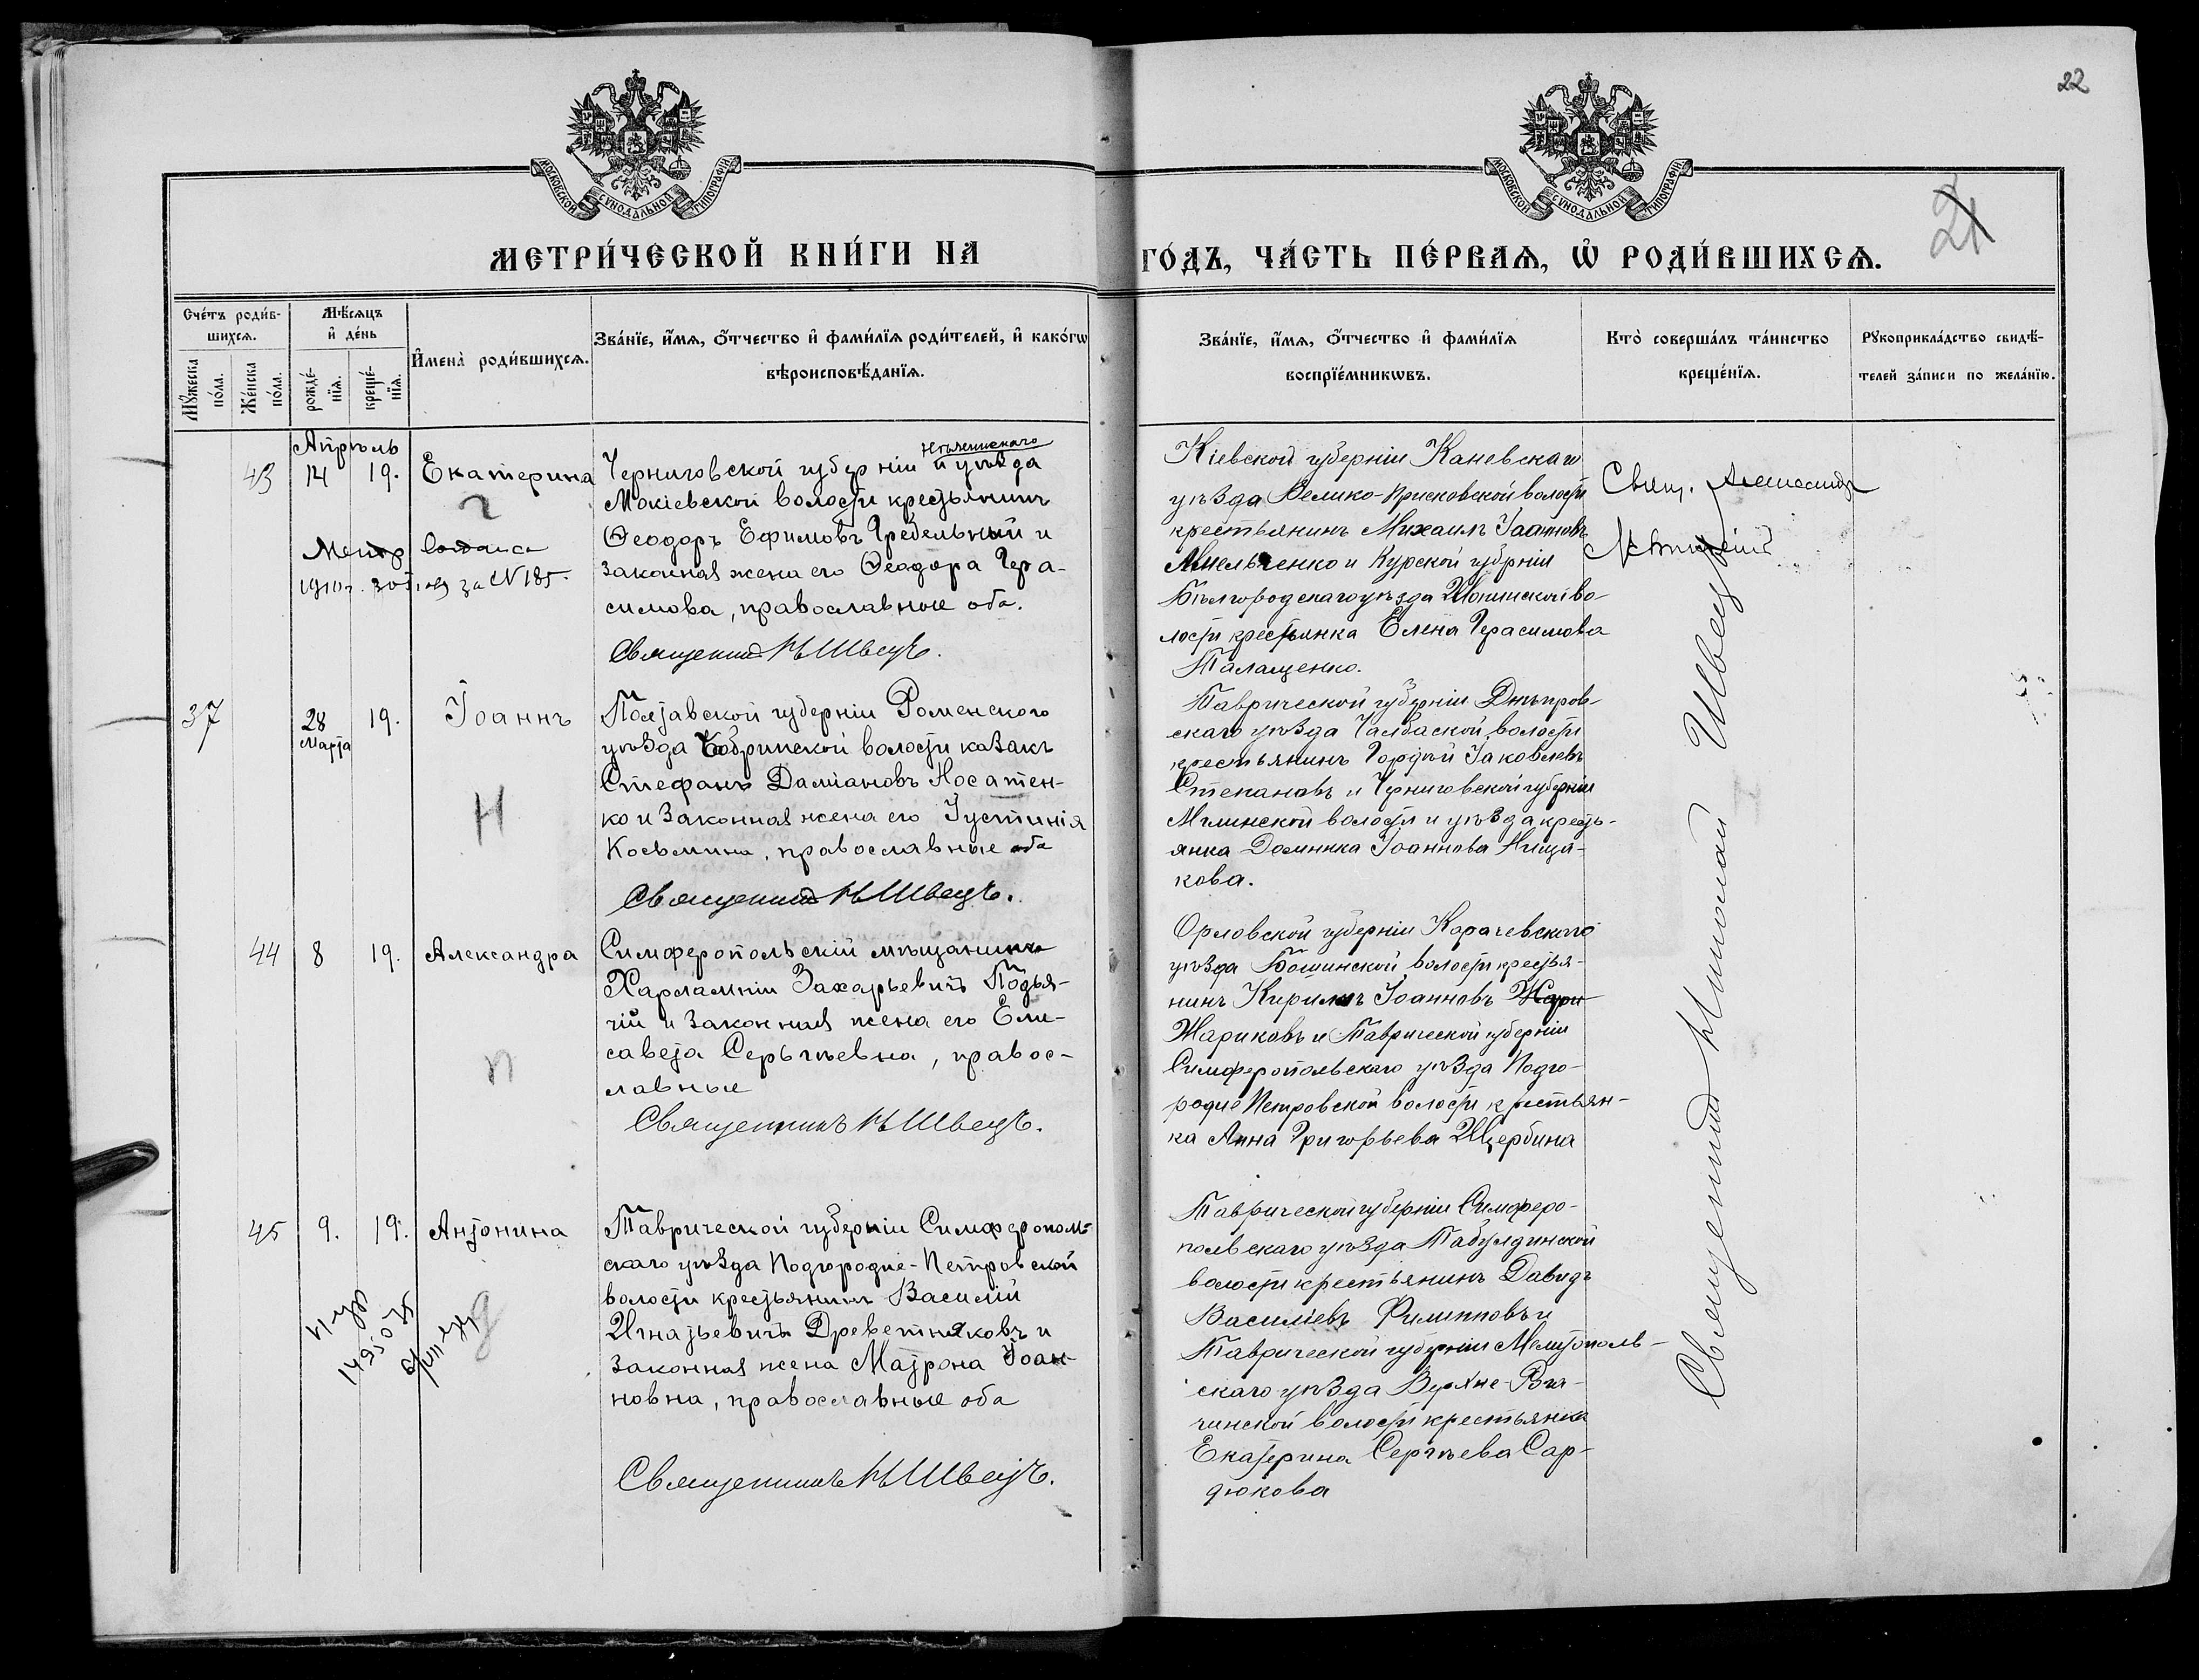 22
21
МОСКОВСКОЙ СѴНОДАЛЬНОЙ ТИПОГРАФІИ
МОСКОВСКОЙ СѴНОДАЛЬНОЙ ТИПОГРАФІИ
МЕТРИ́ЧЕСКОЙ КНИ́ГИ НА
ГО́ДЪ, ЧА́СТЬ ПЕ́РВАѦ, Ѡ҆ РОДИ́ВШИХСѦ.
Сче́тъ роди́в-
шихсѧ.
Мꙋ́жеска
по́ла.
Же́нска
по́ла.
Мѣ́сѧцъ
и҆ де́нь
рожде́-
нїѧ.
креще́-
нїѧ.
И҆мена̀ роди́вшихсѧ.
Зва́нїе, и҆́мѧ, ѻ҆́тчество и҆ фами́лїѧ роди́телей, и҆ како́гѡ
вѣроисповѣ́данїѧ.
Зва́нїе, и҆́мѧ, ѻ҆́тчество и҆ фами́лїѧ
воспрїе́мникѡвъ.
Кто̀ соверша́лъ та́инство
креще́нїѧ.
Рꙋкоприкла́дство свидѣ́-
телей за́писи по жела́нїю.
Апрѣль
43 14 19. Екатерина
Черниговской губерніи и уѣзда
Мокіевской волости крестьянинъ
Ѳеодоръ Ефимовъ Гребельный и
законная жена его Ѳеодора Гера-
симова, православные оба.
Священникъ Н Швецъ.
за № 185.
Кіевской губерніи Каневскаго
уѣзда Велико-Присковской волости
крестьянинъ Михаилъ Іоанновъ
Амельченко и Курской губерніи
Бѣлгородскаго уѣзда волости
крестьянка Елена Герасимова
Талащенко.
Свящ.
37 28 19. Іоаннъ
Марта
Н
Полтавской губерніи Роменскаго
уѣзда волости казакъ
Стефанъ Даміановъ Носатен-
ко и законная жена его Іустинія
Косьмина, православные оба
Священникъ Н Швецъ.
Таврической губерніи Днѣпров-
скаго уѣзда Чалбаской волости
крестьянинъ Гордѣй Іаковлевъ
Степановъ и Черниговской губерніи
Мглинской волости и уѣзда кресть-
янка Домника Іоаннова Нища-
кова.
44 8 19. Александра
п
Симферопольскій мѣщанинъ
Харлампіи Захарьевичъ Подья-
чій и законная жена его Ели-
савета Сергѣевна, правос-
лавные
Священникъ Н Швецъ.
Орловской губерніи Карачевскаго
уѣзда Бошинской волости крестья-
нинъ Кириллъ Іоанновъ Жари-
Жариковъ и Таврической губерніи
Симферопольскаго уѣзда Подго-
родне Петровской волости крестьян-
ка Анна Григорьева Щербина
45 9. 19. Антонина
Таврической губерніи Симферополь-
скаго уѣзда Подгородне-Петровской
волости крестьянинъ Василій
Игнатьевичъ Древетняковъ и
законная жена Матрона Іоан-
новна, православные оба
Священникъ Н Швецъ.
Таврической губерніи Симферо-
польскаго уѣзда Табулдинской
волости крестьянинъ Давидъ
Василіевъ Филипповъ и
Таврической губерніи Мелитополь-
скаго уѣзда Верхне-Рога-
чинской волости крестьянка
Екатерина Сергѣева Сар-
дюкова
Священникъ Николай Швецъ